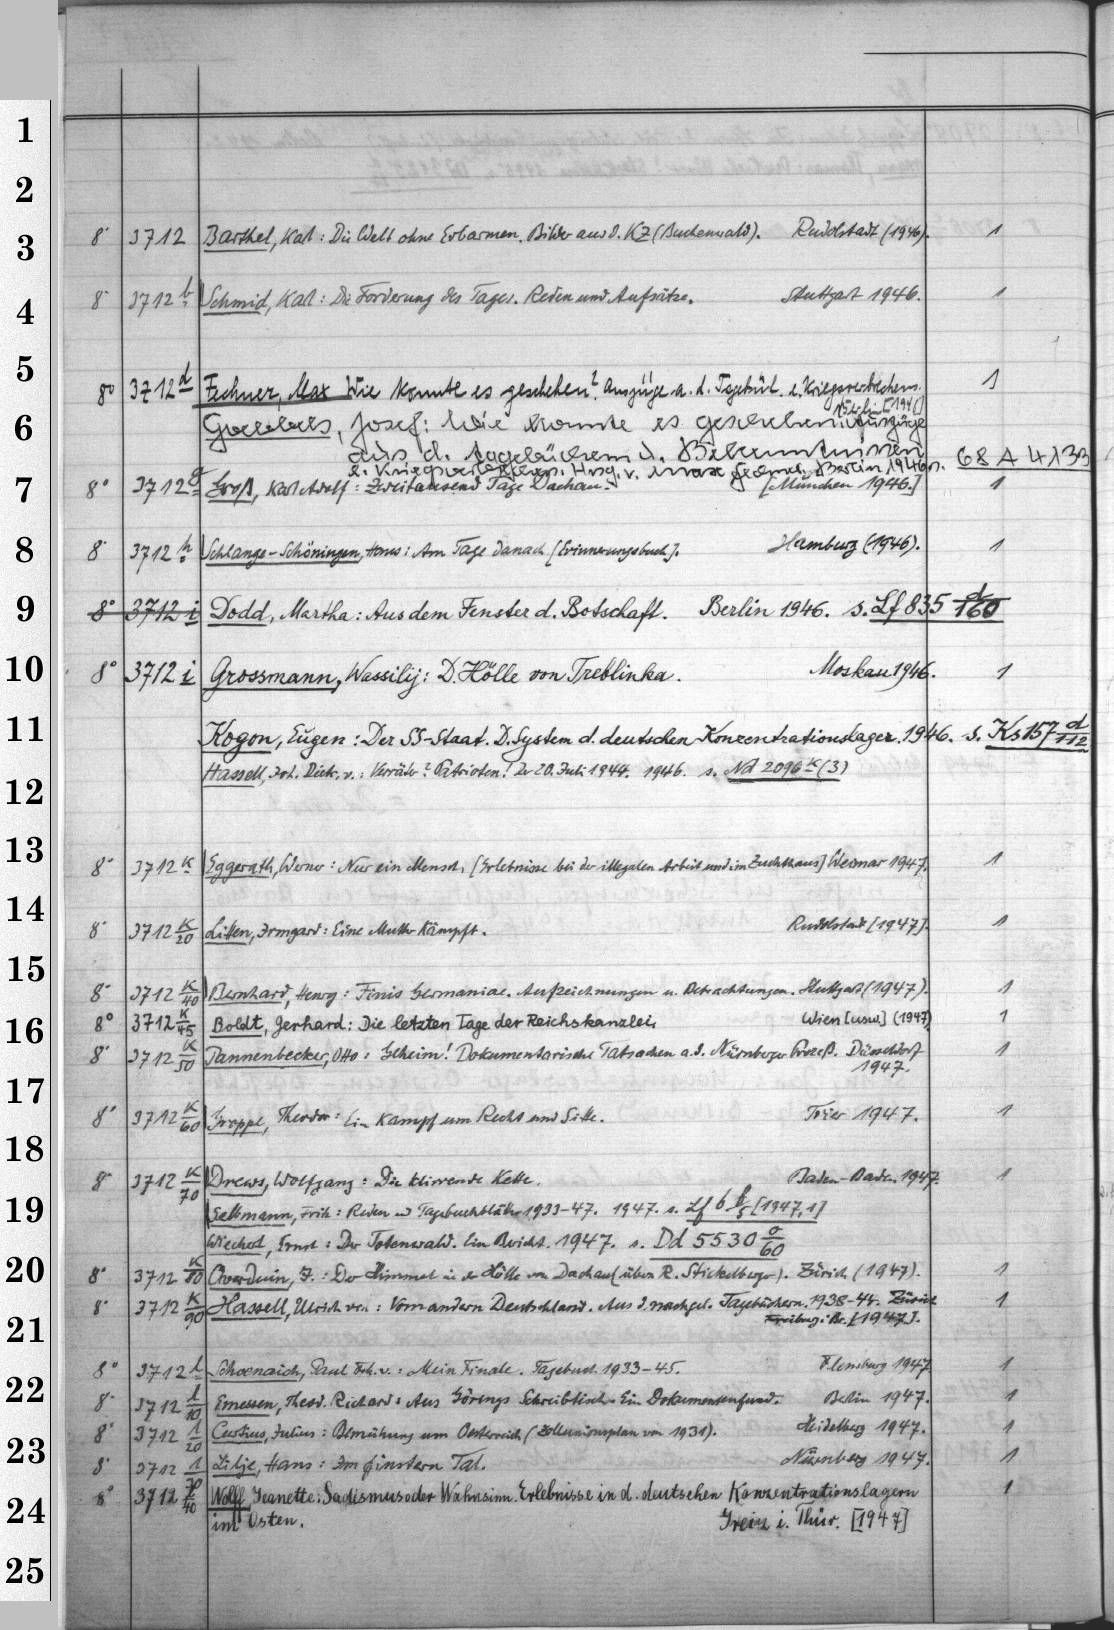 1
2
3
8° 3712 Barthel, Karl: Die Welt ohne Erbarmen. Bilder aus d. KZ (Buchenwald). Rudolstadt (1946). 1
4
8° 3712 b Schmid, Karl: Die Forderung des Tages. Reden und Aufsätze. Stuttgart 1946. 1
5
8° 3712 d Fechner, Max Wie konnte es geschehen? Auszüge a. d. Tagebüch. e. Kriegsverbrechers. 1
Berlin [1946]
6
Goebbels, Josef: Wie konnte es geschehen. Auszüge
aus d. Tagebüchern u. Bekenntnissen
e. Kriegsverbrechers. Hrsg. v. Max Fechner. Berlin 1946. 68 A 4133
7
8° 3712 g Groß, Karl Adolf: Zweitausend Tage Dachau. [München 1946.] 1
8
8° 3712 h Schlange-Schöningen, Hans: Am Tage danach [Erinnerungsbuch]. Hamburg (1946). 1
9
8° 3712 i Dodd, Martha: Aus dem Fenster d. Botschaft. Berlin 1946. s. Lf 835 d/160
10
8° 3712 i Grossmann, Wassilij: D. Hölle von Treblinka. Moskau 1946. 1
11
Kogon, Eugen: Der SS-Staat. D. System d. deutschen Konzentrationslager. 1946. s. Ks 157 d/112
Hassell, Joh. Dietr. v.: Verräter? Patrioten! Der 20. Juli 1944. 1946. s. Nd 2096 k (3)
12
13
8° 3712 k Eggerath, Werner: Nur ein Mensch. [Erlebnisse bei der illegalen Arbeit und im Zuchthaus] Weimar 1947. 1
14
8° 3712 k/20 Litten, Irmgard: Eine Mutter kämpft. Rudolstadt [1947]. 1
15
8° 3712 k/40 Bernhard, Henry: Finis Germaniae. Aufzeichnungen u. Betrachtungen. Stuttgart (1947). 1
16
8° 3712 k/45 Boldt, Gerhard: Die letzten Tage der Reichskanzlei. Wien [usw.] (1947) 1
8° 3712 k/50 Pannenbecker, Otto: Geheim! Dokumentarische Tatsachen a. d. Nürnberger Prozeß. Düsseldorf 1
1947.
17
8° 3712 k/60 Groppe, Theodor: Ein Kampf um Recht und Sitte. Trier 1947. 1
18
8° 3712 k/70 Drews, Wolfgang: Die klirrende Kette. Baden-Baden 1947. 1
19
Sellmann, Fritz: Reden u Tagebuchblätter 1933-47. 1947. s. Lf 6 [1947, 1]
Wiechert, Ernst: Der Totenwald. Ein Bericht. 1947. s. Dd 5530 o/60
20
8° 3712 k/80 Overduin, J.: Der Himmel in der Hölle von Dachau (übers. R. Stickelberger). Zürich (1947). 1
8° 3712 k/90 Hassell, Ulrich von: Vom andern Deutschland. Aus d. nachgel. Tagebüchern. 1938-44. Zürich 1
Freiburg i. Br. [1947].
21
8° 3712 l Schoenaich, Paul Frh. v.: Mein Finale. Tagebuch 1933-45. Flensburg 1947 1
22
8° 3712 l/10 Emessen, Theod. Richard: Aus Görings Schreibtisch. Ein Dokumentenfund. Berlin 1947. 1
8° 3712 l/20 Curtius, Julius: Bemühung um Oesterreich (Zollunionsplan von 1931). Heidelberg 1947. 1
23
8° 3712 l Lilje, Hans: Im finstern Tal. Nürnberg 1947. 1
8° 3712 /40 Wolff, Jeanette: Sadismus oder Wahnsinn. Erlebnisse in d. deutschen Konzentrationslagern 1
24
im Osten. Greiz i. Thür. [1947]
25